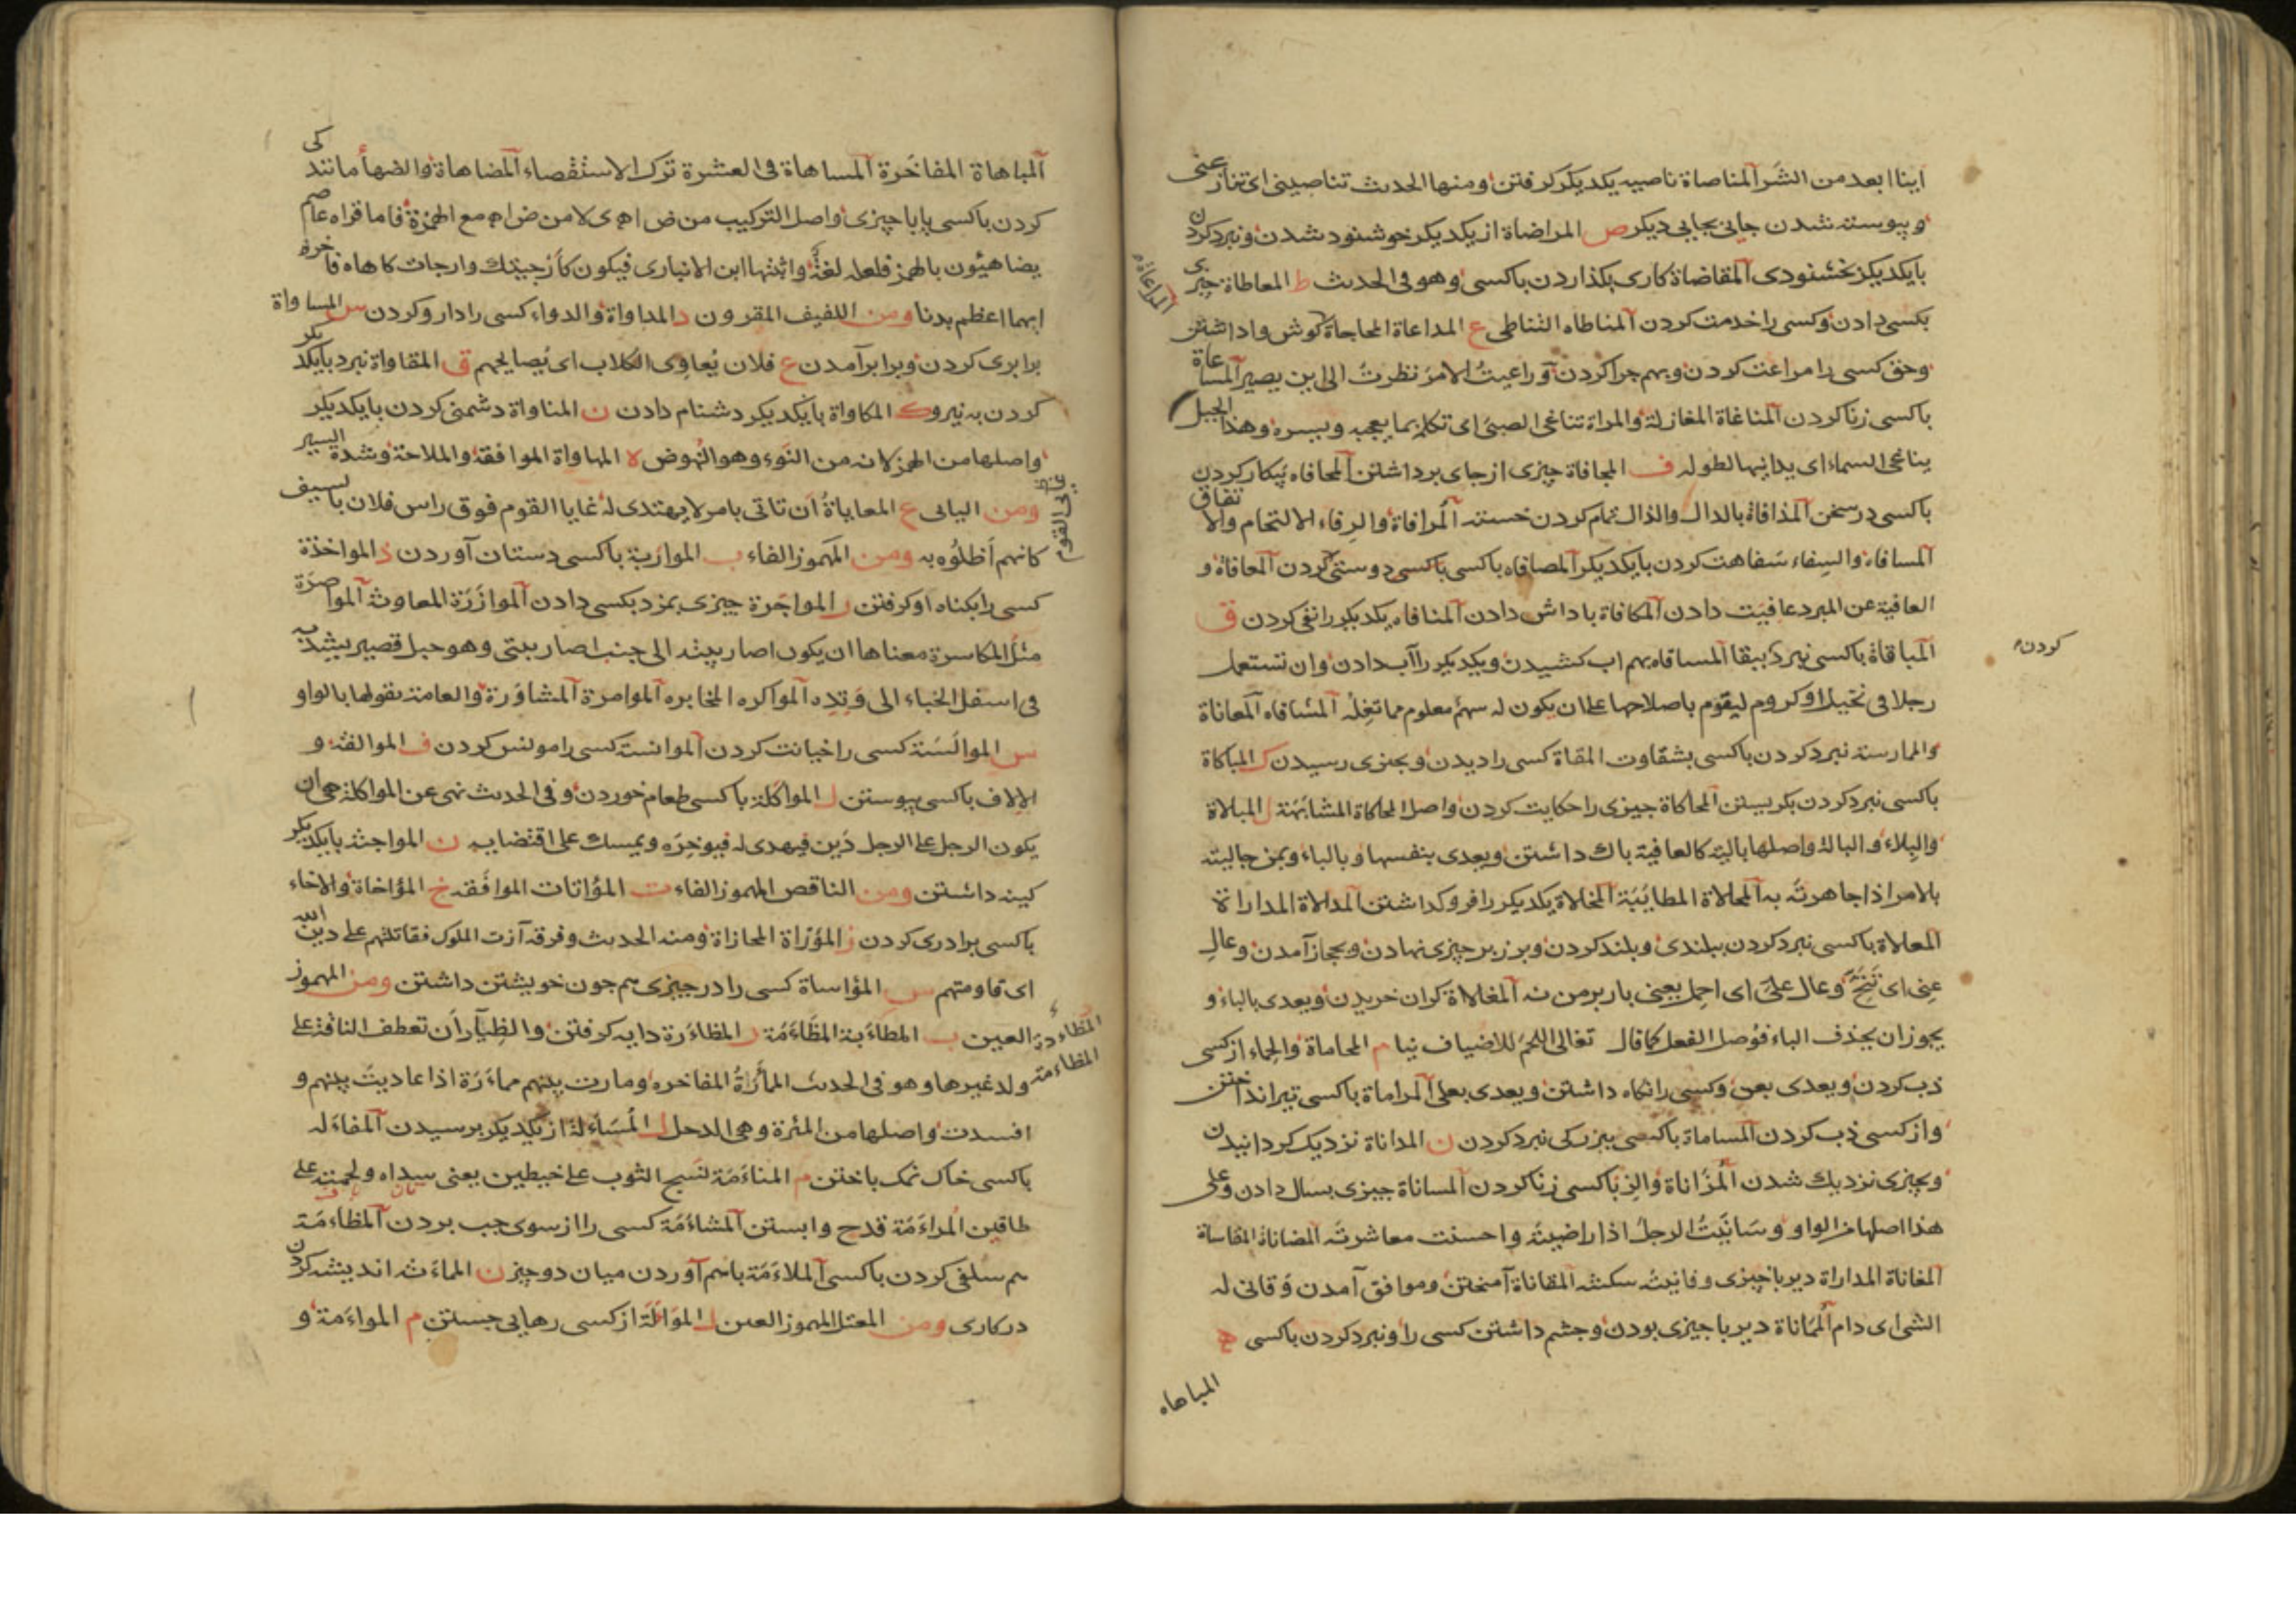 اینا ابعد من الشر المناصاة ناصیه یکدیکر کرفتن ومنها الحدیث تناصینی ای تنازعنی
وپیوسته شدن جایی بجایی دیکر ص المراضاة از یکدیکر خوشنود شدن ونبرد کردن
بایکدیکر بخشنودی المقاضاة کاری بکذاردن باکسی وهو فی الحدیث ط المعاطاة چیزی
بکسی دادن وکسی را خدمت کردن المناطاه التناطی ع المداعاة المحاجاة کوش واداشتن
المراعاة
وحق کسی را مراعت کردن وبهم چرا کردن وراعیت الامر نظرت الی این یصیر المساعاة
باکسی زنا کردن المناغاة المغازلة والمراة تناغی الصبی ای تکلمه بما یعجبه ویسره وهذا الجبل
یناغی السماء ای یدانیها لطوله ف المجافاة چیزی از جای برداشتن المحافاه پیکار کردن
باکسی در سخن المذافاة بالدال والذال تمام کردن خسته المرافاة والرفاء الالتحام والاتفاق
المسافاه والسفاء سفاهت کردن بایکدیکر المصافاه باکسی دوستی کردن المعافاة و
العافیة عن المبرد عافیت دادن المکافاة پاداش دادن المنافاه یکدیکر را نفی کردن ق
المباقاة باکسی نبرد ببقا المساقاه بهم اب کشیدن ویکدیکر را آب دادن وان تستعمل
کردن
رجلا فی نخیل او کروم لیقوم باصلاحها علی ان یکون له سهم معلوم مما تغله المشاقاه المعاناة
والممارسة نبرد کردن باکسی بشقاوت المقاة کسی را دیدن وبچیزی رسیدن ک المباکاة
باکسی نبرد کردن بکریستن المحاکاة چیزی را حکایت کردن واصل المحاکاة المشابهة ل المبالاة
والبلاء والبالة واصلها بالیة کالعافیة باک داشتن ویعدی بنفسها وبالباء وبمن جالیته
بالامر اذا جاهرته به المحالاة المطایبة المخالاة یکدیکر را فرو کذاشتن المدالاة المداراة
المعالاة باکسی نبرد کردن ببلندی وبلند کردن وبر زبر چیزی نهادن وبحجاز آمدن وعال
عنی ای تنح وعال علی ای احمل یعنی بار بر من نه المغالاة کران خریدن ویعدی بالباء و
یجوز ان یحذف الباء فوصل الفعل کما قال تغالی اللحم للاضیاف نیا م المحاماة والحماء از کسی
ذب کردن ویعدی بعن وکسی را نکاه داشتن ویعدی بعلی المراماة باکسی تیر انداختن
واز کسی ذب کردن المساماة باکسی ببزرکی نبرد کردن ن المداناة نزدیک کردانیدن
وبچیزی نزدیک شدن المزاناة والزنا باکسی زنا کردن المساناة چیزی بسال دادن وعلی
هذا اصلها من الواو وسانیت الرجل اذا راضیته واحسنت معاشرته المضاناة المقاساة
المغاناة المداراة دیر با چیزی وفانیته سکنته المقاناة آمیختن وموافق آمدن وقانی له
الشی ای دام المماناة دیر با چیزی بودن وچشم داشتن کسی را ونبرد کردن باکسی ه
المباهاه
المباهاة المفاخرة المساهاة فی العشرة ترک الاستقصاء المضاهاة والضهأ مانندکی
کردن باکسی یا با چیزی واصل الترکیب من ض ه ی لا من ض ه مع الهمزة فاما قراه عاصم
یضاهئون بالهمز فلعله لغة واثبتها ابن الانباری فیکون کارجیتک وارجات کاهاه فاخره
ایهما اعظم بدنا ومن اللفیف المقرون د المداواة والدواء کسی را دارو کردن س المساواة
برابری کردن وبرابر آمدن ع فلان یعاوی الکلاب ای یصایحهم ق المقاواة نبرد بایکدیکر
کردن به نیرو ک المکاواة بایکدیکر دشنام دادن ن المناواة دشمنی کردن بایکدیکر
واصلها من الهمز لانه من النوء وهو النهوض ه المهاواة الموافقة والملاحة وشدة السیر
ومن الیائی ع المعایاة ان تاتی بامر لا یهتدی له غایا القوم فوق راس فلان بالسیف
کانهم اظلوه به ومن المهموز الفاء ب المواربة باکسی دستان آوردن ذ المواخذة
کسی را بکناه او کرفتن ر المواجرة چیزی بمزد بکسی دادن الموازرة المعاونة المواصرة
مثل المکاسرة معناها ان یکون اصار بیته الی جنب اصار بیتی وهو حبل قصیر یشد به
فی اسفل الخباء الی وتده المواکره المخابره الموامرة المشاورة والعامة یقولها بالواو
س الموالسة کسی را خیانت کردن الموانسة کسی را مونس کردن ف الموالفة و
الالاف باکسی پیوستن ل المواکلة باکسی طعام خوردن وفی الحدیث نهی عن المواکلة هی ان
یکون الرجل علی الرجل دین فیهدی له فیوخره ویمسک علی اقتضایه ن المواحنة بایکدیکر
کینه داشتن ومن الناقص المهموز الفاء ت المؤاتات الموافقة خ المؤاخاة والاخاء
باکسی برادری کردن ز المؤزاة المحازاة ومنه الحدیث وفرقة آزت الملوک فقاتلتهم علی دین الله
ای قاومتهم س المؤاساة کسی را در چیزی هم چون خویشتن داشتن ومن المهموز
العین ب المظاءبة المظاءمة ر المظاءرة دایه کرفتن والظیآر ان تعطف الناقة علی
ولد غیرها وهو فی الحدیث المأرة المفاخره ومارت بینهم مماءرة اذا عادیت بینهم و
افسدت واصلها من المئرة وهی الدحل ل المساءلة از یکدیکر پرسیدن المفاءله
باکسی خاک نمک باختن م المناءمة نسج الثوب علی خیطین یعنی سداه ولحمته علی
طاقین المراءمة قدح وابستن المشاءمة کسی را از سوی چپ بردن المظاءمة
هم سلفی کردن باکسی الملاءمة باهم آوردن میان دو چیز ن المماءنة اندیشه کردن
در کاری ومن المعتل المهموز العین ل المواءلة از کسی رهایی جستن م المواءمة و